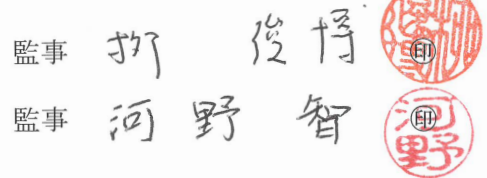 監事 柳 俊博 ㊞
監事 河野 智 ㊞
河野